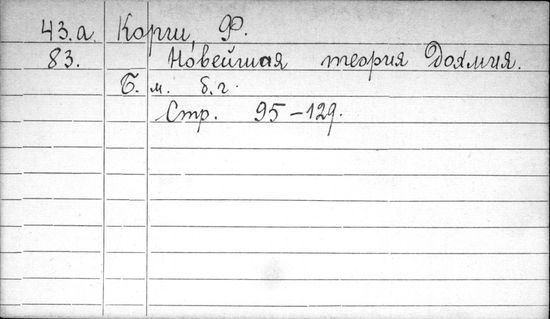 43.а. Корш, Ф.
83. Новейшая теория дохмия.
Б. м. б. г.
Стр. 95-129.